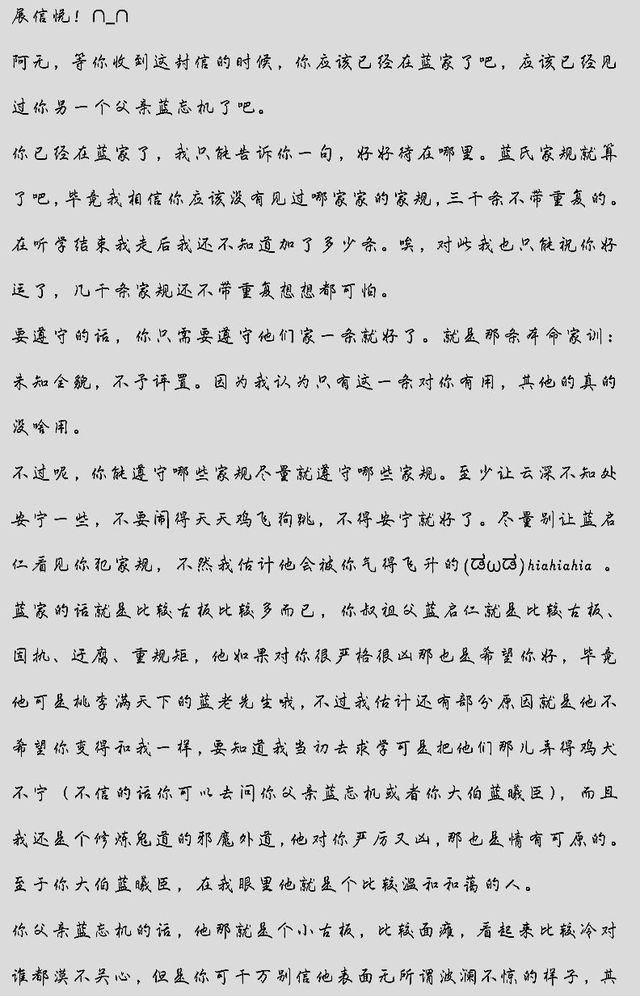 展信悦！∩_∩
阿无，等你收到这封信的时候，你应该已经在蓝家了吧，应该已经见
过你另一个父亲蓝忘机了吧。
你已经在蓝家了，我只能告诉你一句，好好待在哪里。蓝氏家规就算
了吧，毕竟我相信你应该没有见过哪家家的家规，三千条不带重复的。
在听学结束我走后我还不知道加了多少条。唉，对此我也只能祝你好
运了，几千条家规还不带重复想想都可怕。
要遵守的话，你只需要遵守他们家一条就好了。就是那条本命家训：
未知全貌，不予评置。因为我认为只有这一条对你有用，其他的真的
没啥用。
不过呢，你能遵守哪些家规尽量就遵守哪些家规。至少让云深不知处
安宁一些，不要闹得天天鸡飞狗跳，不得安宁就好了。尽量别让蓝启
仁看见你犯家规，不然我估计他会被你气得飞升的(ಡωಡ)hiahiahia 。
蓝家的话就是比较古板比较多而已，你叔祖父蓝启仁就是比较古板、
固执、迂腐、重规矩，他如果对你很严格很凶那也是希望你好，毕竟
他可是桃李满天下的蓝老先生哦，不过我估计还有部分原因就是他不
希望你变得和我一样，要知道我当初去求学可是把他们那儿弄得鸡犬
不宁（不信的话你可以去问你父亲蓝忘机或者你大伯蓝曦臣），而且
我还是个修炼鬼道的邪魔外道，他对你严厉又凶，那也是情有可原的。
至于你大伯蓝曦臣，在我眼里他就是个比较温和和蔼的人。
你父亲蓝忘机的话，他那就是个小古板，比较面瘫，看起来比较冷对
谁都漠不关心，但是你可千万别信他表面无所谓波澜不惊的样子，其